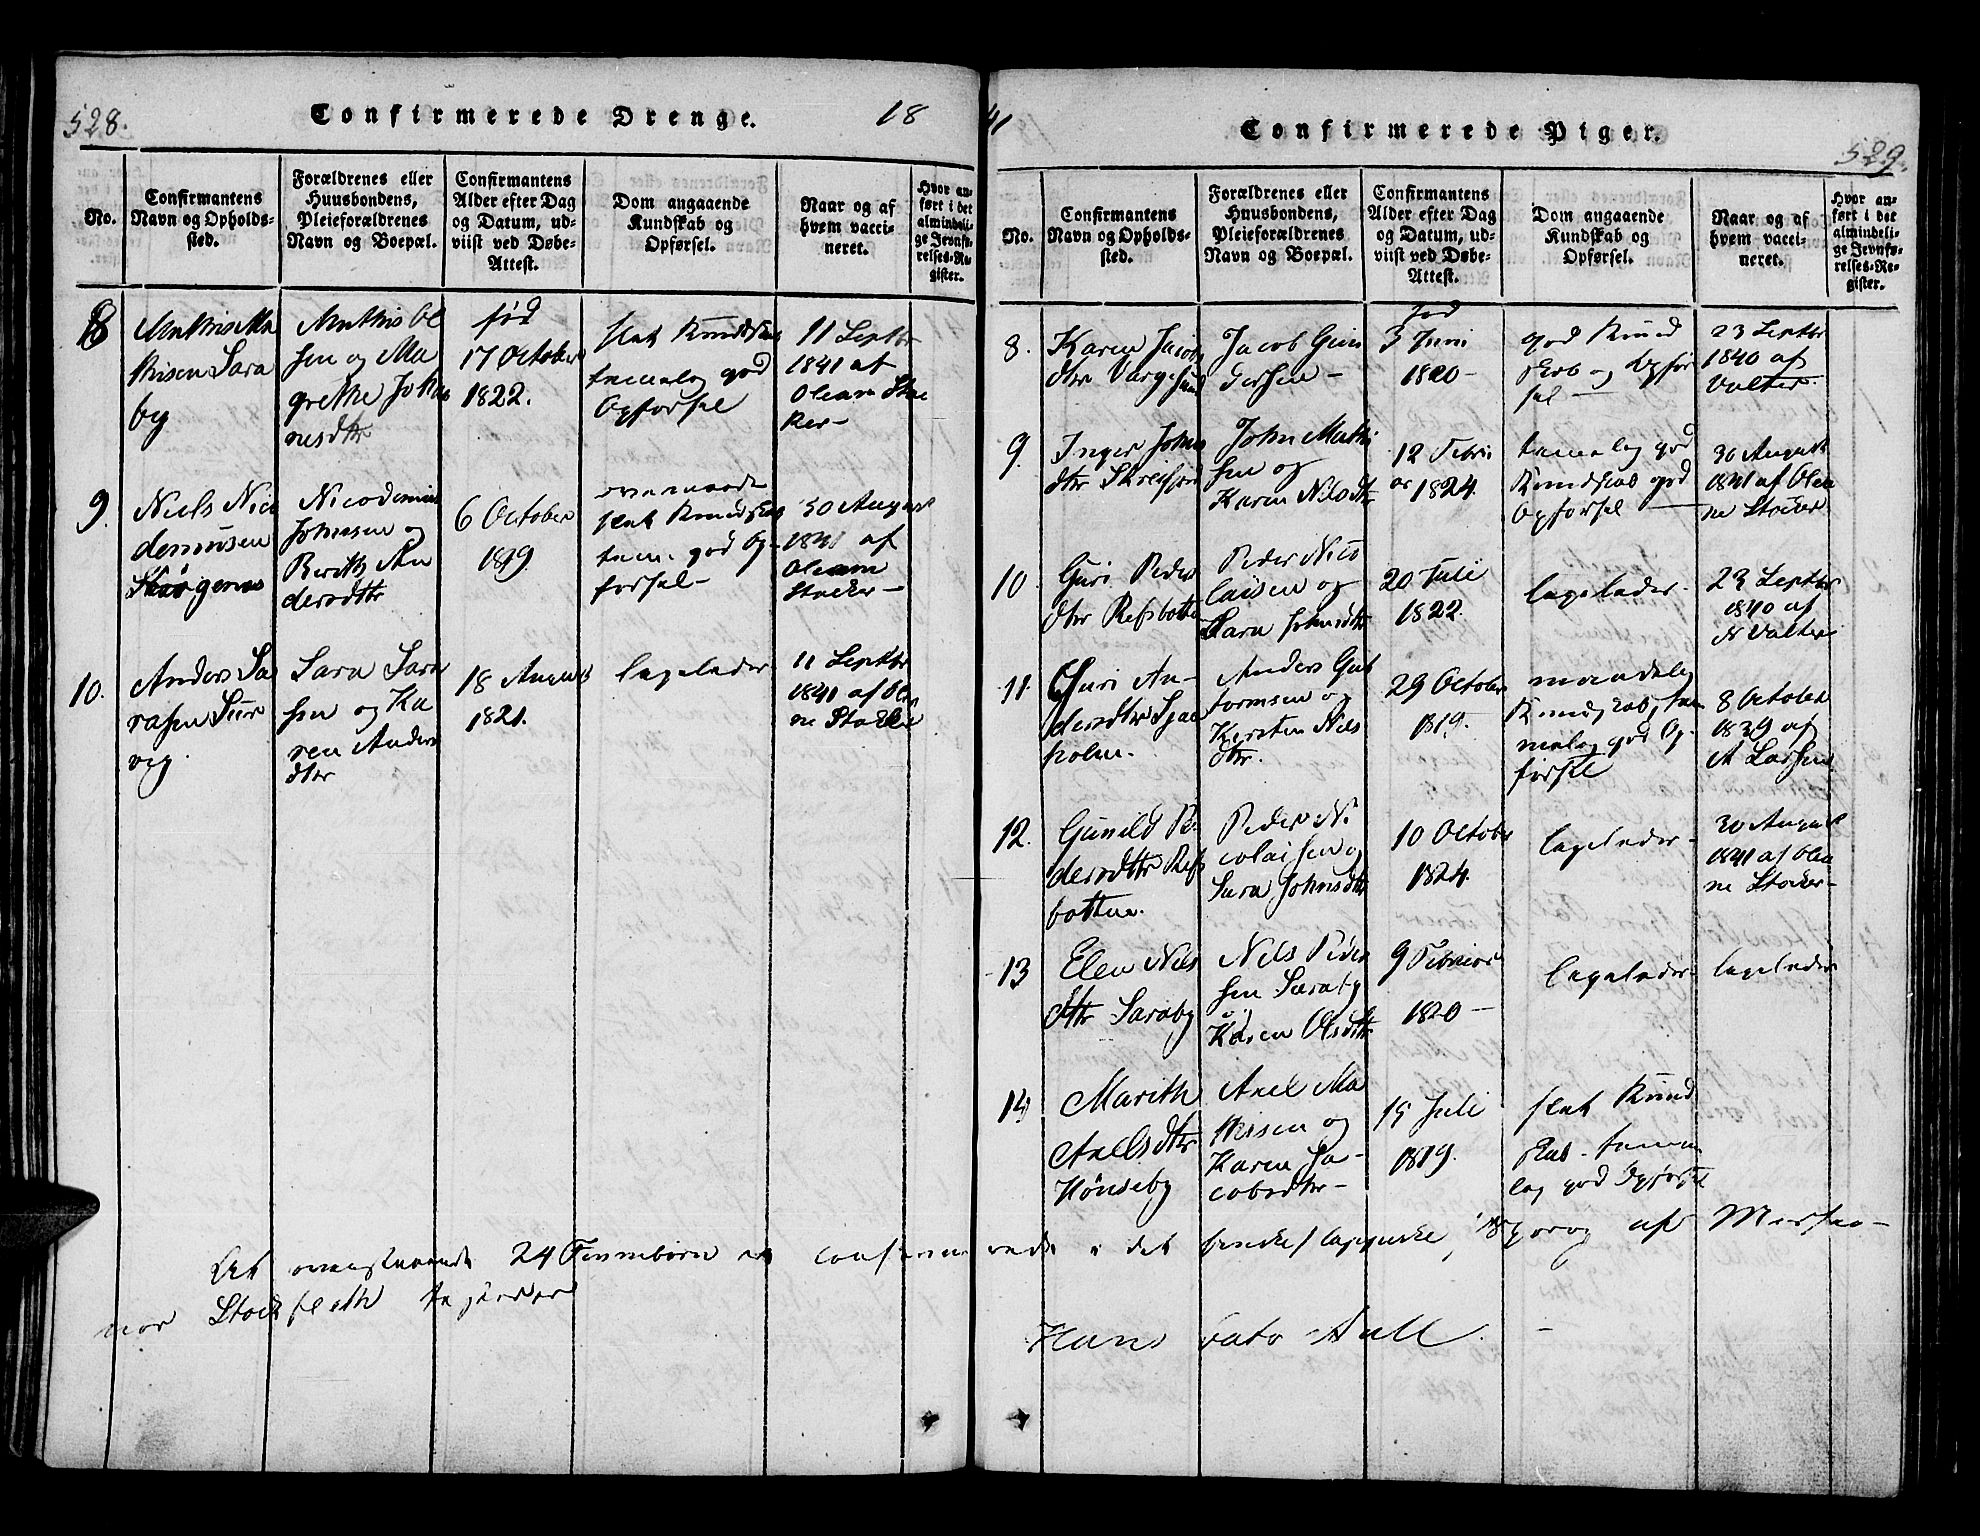 528.
Confirmerede Drenge.
18
No.
Confirmantens
Navn og Opholds-
sted.
Forældrenes eller
Huusbondens,
Pleieforældrenes
Navn og Boepæl.
Confirmantens
Alder efter Dag
og Datum, ud-
viist ved Døbe-
Attest.
Dom angaaende
Kundskab og
Opførsel.
Naar og af
hvem vacci-
neret.
Hvor an-
ført i det
almindeli-
ge Jevnfø-
relses-Re-
gister.
8
Mathis Ma
thisen Sara
by
Mathis Ol
sen og Ma
grethe Joha
nesdtr
fød
17 October
1822.
slet Kundskab
temelig god
Opførsel
11 Septbr
1841 af
Oleam Stoc
ker-
9.
Niels Nico
demusen
Nicodemus
Johnsen og
Berith An
dersdtr
6 October
1819.
slet Kundskab
tem. god Op-
førsel-
30 August
1841 af
Oleam
Stocker-
10.
Anders Sa
rasen Sur
vig.
Sara Sara
sen og Ka
ren Anders
dtr
18 August
1821.
ligeleder
11 Septbr
1841 af Ole
ne Stocker
41
Confirmerede Piger.
529.
No.
Confirmantens
Navn og Opholds-
sted.
Forældrenes eller
Huusbondens,
Pleieforældrenes
Navn og Boepæl.
Confirmantens
Alder efter Dag
og Datum, ud-
viist ved Døbe-
Attest.
Dom angaaende
Kundskab og
Opførsel.
Naar og af
hvem vacci-
neret.
Hvor an-
ført i det
almindeli-
ge Jevnfø-
relses-Re-
gister.
8.
Karen Jacobs
dtr Vargesund
Jacob Gun
dersen-
fød
3 Juni
1820-
god Kund
skab og Opfør
sel-
23 Septbr
1840 af
Valter.
9.
Inger Johns
dtr
John Mathi
sen og
Karen Nilsdtr
12 Febru
ar 1824.
temelig god
Kundskab god
Opførsel
30 August
1841 af Olea
ne Stocker
10.
Guri Peders
dtr Refsbotten
Peder Nico
laisen og
Sara Johnsdtr
20 Juli
1822.
ligeleder-
23 Septbr
1840 af
N Valter
11.
Guri An-
dersdtr Sjaa
holm.
Anders Gut
tormsen og
Kirsten Nils
dtr.
29 October
1819.
maadelig
Kundskab, tem
melig god Op-
førsel
8 October
1839 af
A Larsen
12.
Gunild Pe
dersdtr Refs
botten.
Peder Ni
colaisen og
Sara Johnsdtr
10 October
1824.
ligeleder-
30 August
1841 af Olea
ne Stocker-
13
Elen Nils
dtr Saraby
Nils Peder
sen Saraby
og
Karen Olsdtr
9 Februar
1820-
ligeleder
ligeleder
14
Marith
Axelsdtr
Hønseby
Axel Ma
thisen og
Karen Ja-
cobsdtr-
15 Juli
1819.
slet Kund
skab- temme
lig god Opførsel
At ovenstaaende 24 Finnebørn ere confirmerede i det finske/lappiske/ Sprog af Missio-
nær Stockfleth
Hans Cato Aall.